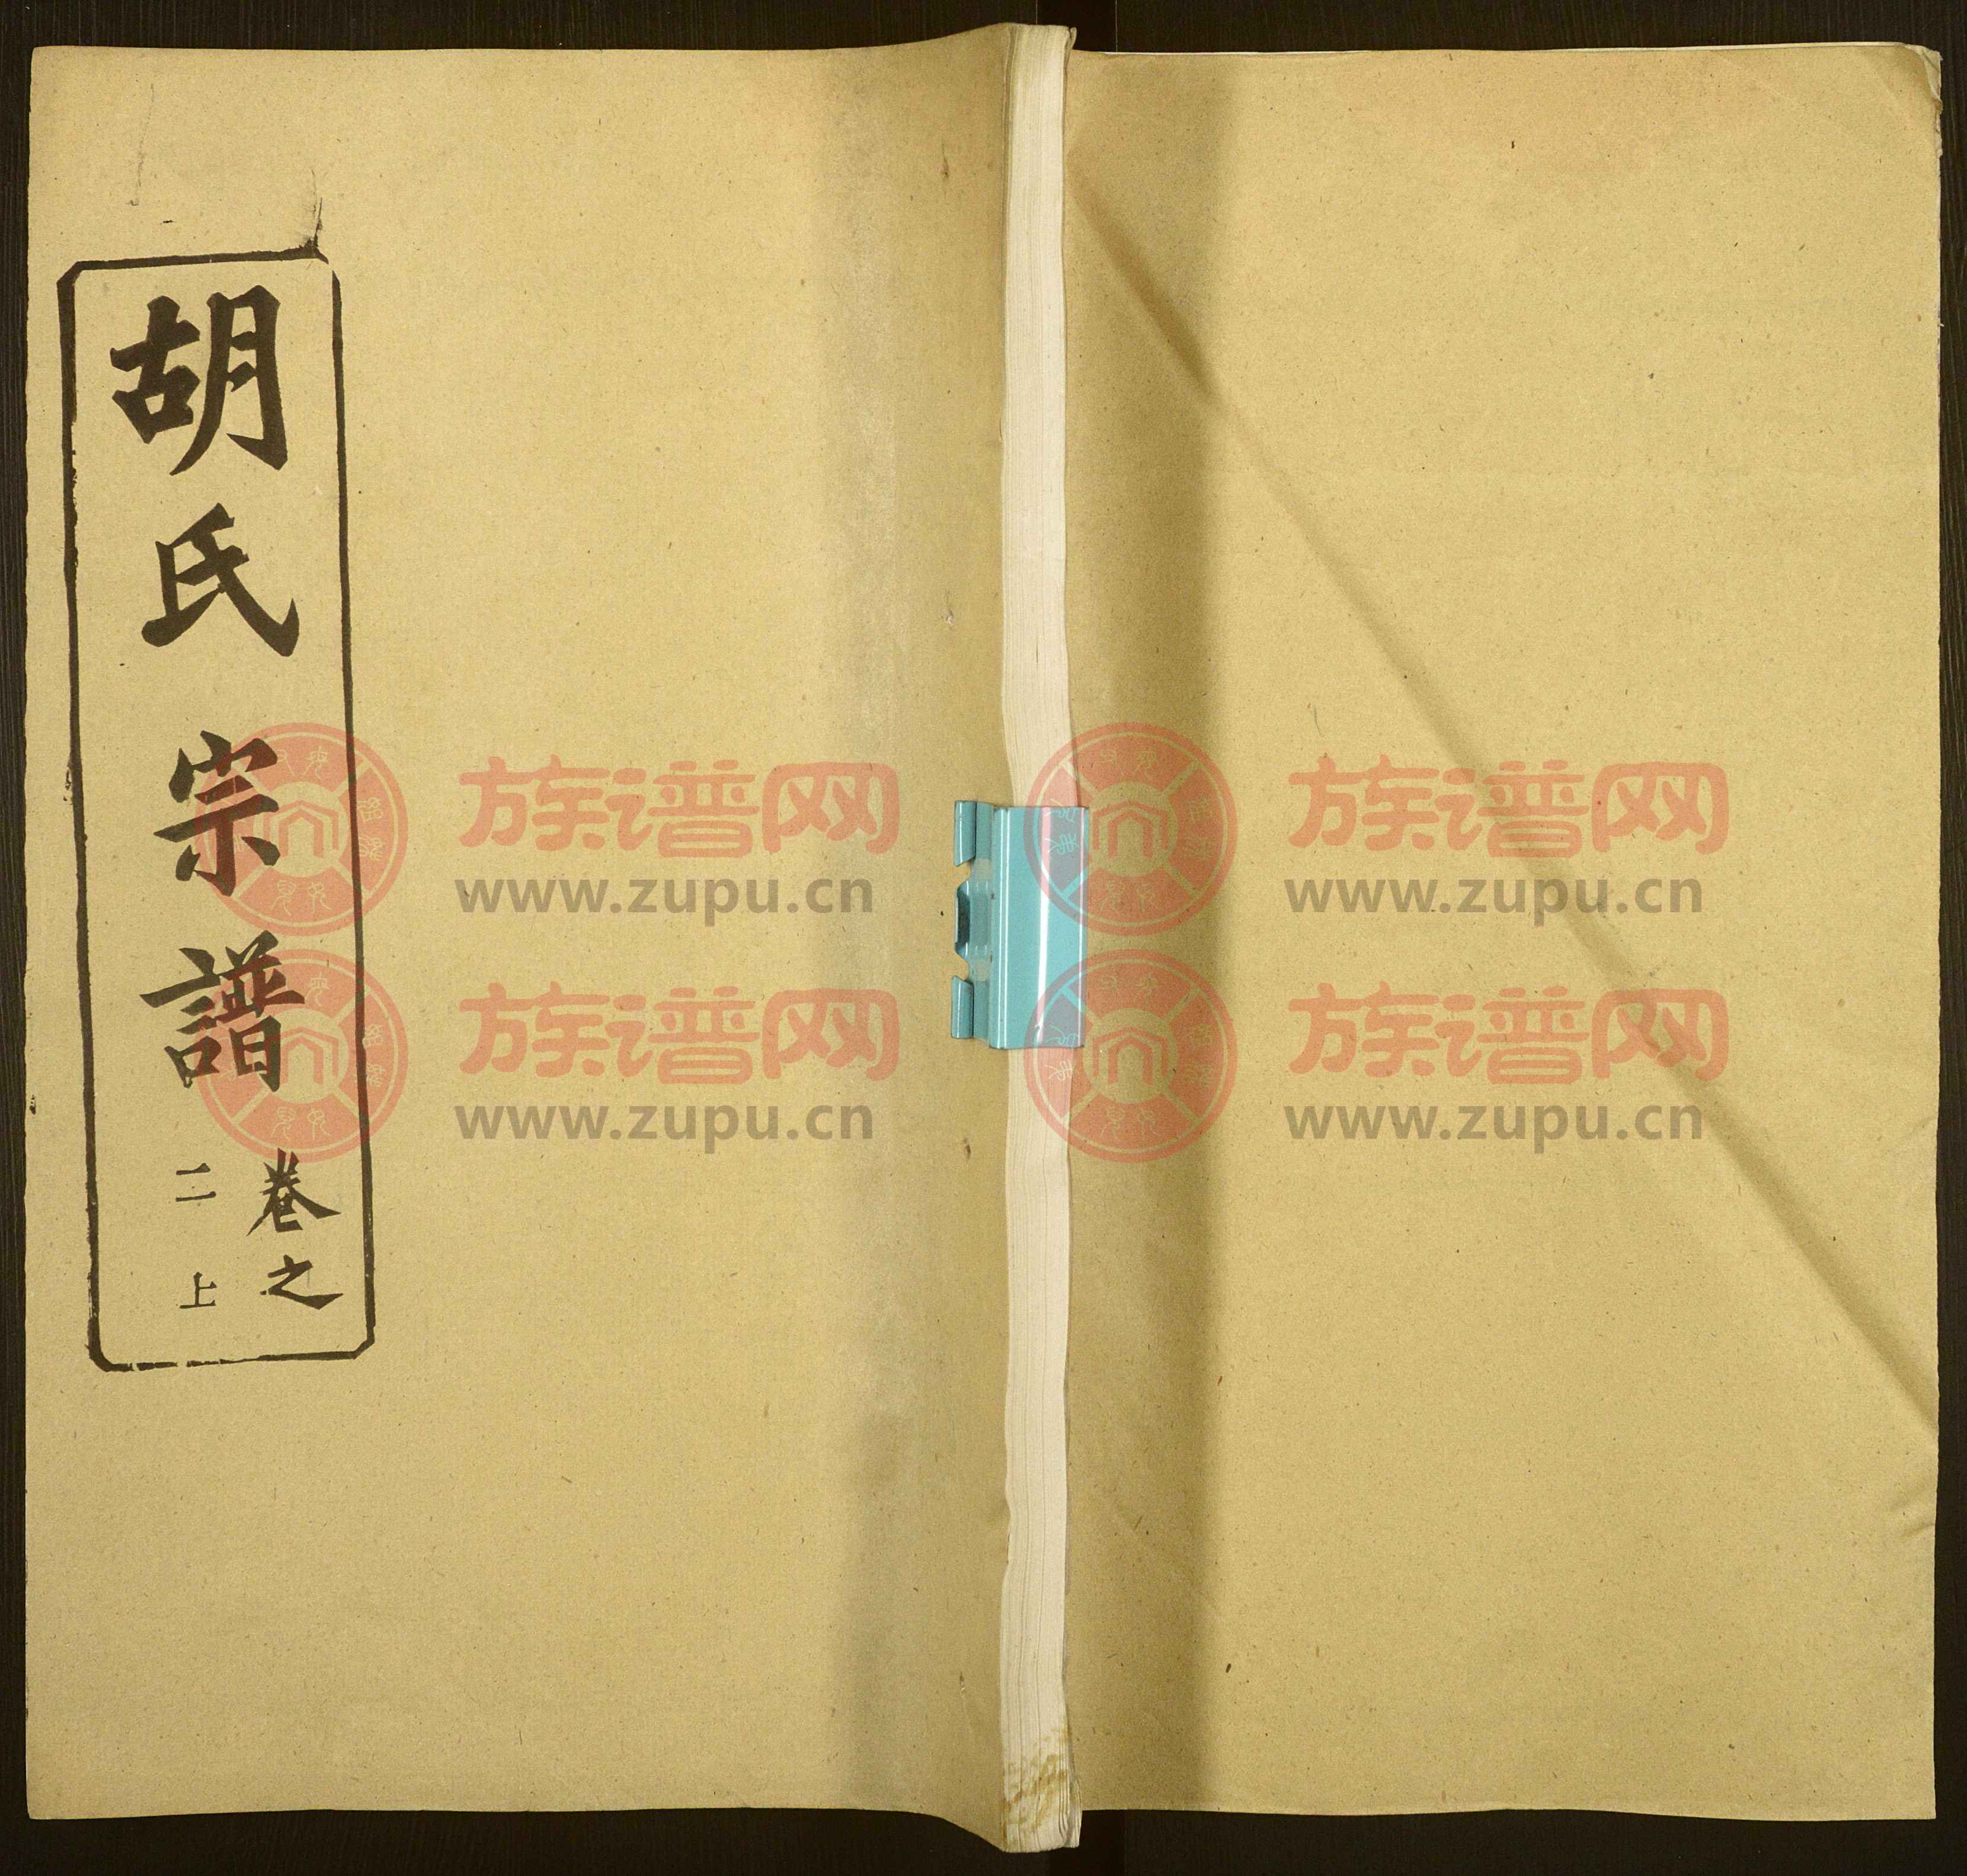 胡氏宗譜
卷之
二上
族谱网
www.zupu.cn
族谱网
www.zupu.cn
族谱网
www.zupu.cn
族谱网
www.zupu.cn